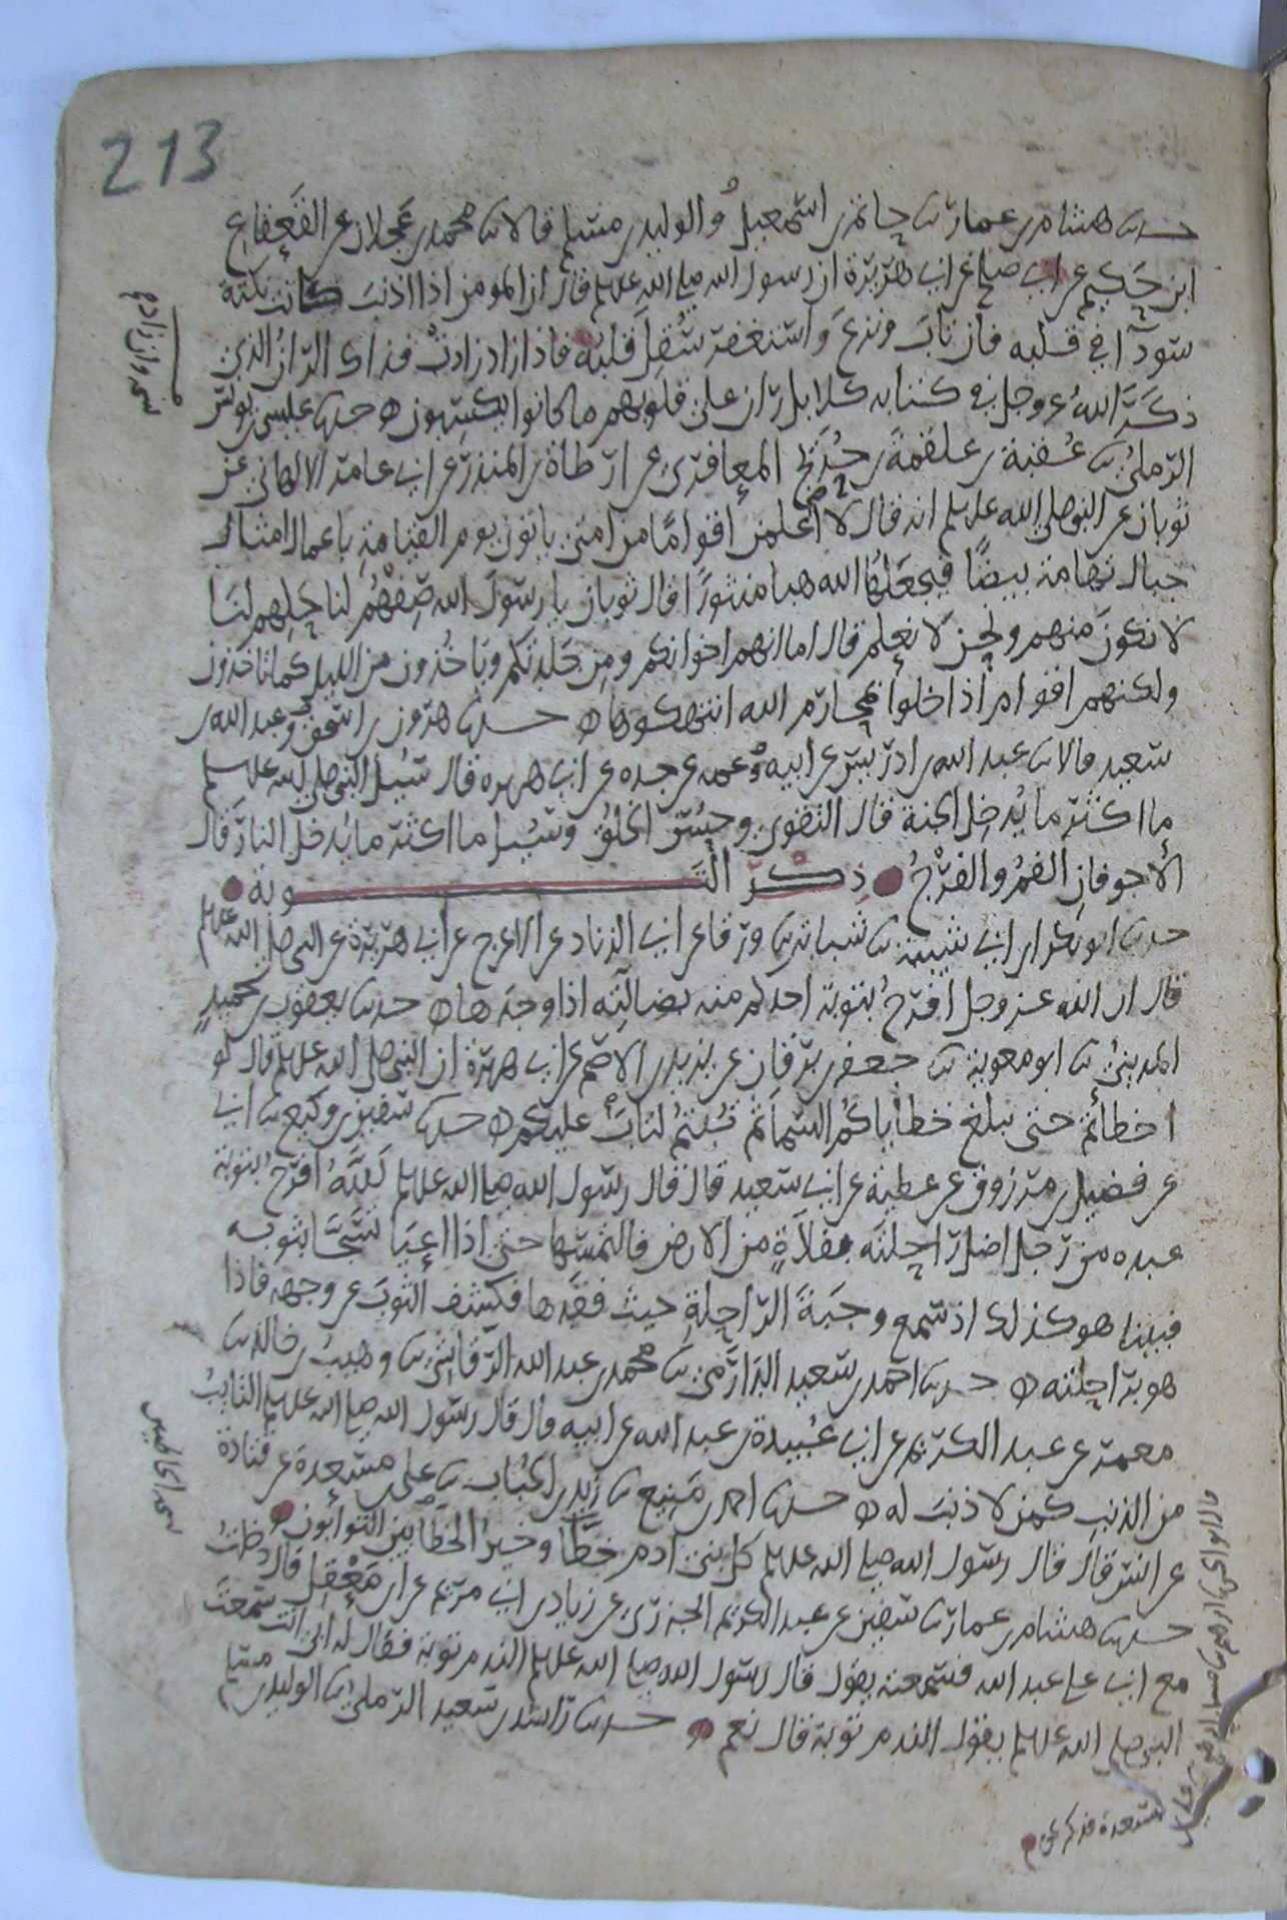 213
حدثنا هشام بن عمار ثنا حاتم بن اسمعيل والوليد بن مسلم قالا ثنا محمد بن عجلان عن القعقاع
ابن حكيم عن ابي صالح عن ابي هريرة ان رسول الله صلى الله عليه وسلم قال ان المومن اذا اذنب كانت نكتة
سودآ في قلبه فان تاب ونزع واستغفر صُقِل قلبُه فاذا زاد زادت فذاك الرّانُ الذي
ذكرَ اللهُ عز وجل في كتابه كلا بل ران على قلوبهم ما كانوا يكسبون حدثنا عيسى بن يونس
الرملي ثنا عُقبة بن علقمة بن حُدَيْج المعافري عن ارطاة بن المنذر عن ابي عامر الالهاني عن
ثوبان عن النبي صلى الله عليه وسلم انه قال لا اعلمن اقوامًا من امتي ياتون يوم القيامة باعمال امثال
جبال تهامة بيضًا فيجعلها الله هبا منثورًا قال ثوبان يا رسول الله صِفْهُم لنا جَلِهم لنا
لا نكون منهم ونحن لا نعلم قال اما انهم اخوانكم ومن جلدتكم وياخذون من الليل كما تاخذون
ولكنهم اقوام اذا خلوا بمحارم الله انتهكوها حدثنا هرون بن اسحق وعبد الله بن
سعيد قالا ثنا عبد الله بن ادريس عن ابيه وعمه عن جده عن ابي هريره قال سُيل النبي صلى الله عليه وسلم
ما اكثر ما يُدخِل الجنة قال التقوى وحُسْن الخلُق وسُيل ما اكثر ما يُدخل النار قال
الاجوفان الفمُ والفرْجُ ذكر التوبة
حدثنا ابو بكر ابن ابي شيبة ثنا شبابة ثنا ورقا عن ابي الزناد عن الاعرج عن ابي هريرة عن النبي صلى الله عليه وسلم
قال ان الله عز وجل افرح بتوبة احدكم منه بضالته اذا وجدها حدثنا يعقوب بن حميد
المديني ثنا ابو معوية ثنا جعفر بن برقان عن يزيد بن الاصم عن ابي هريرة ان النبي صلى الله عليه وسلم قال لو
اخطاتم حتى تبلغ خطاياكُم السّما ثم تُبتُم لتابَ عليكم حدثنا سفين بن وكيع ثنا ابي
عن فضيل بن مرزوق عن عطية عن ابي سعيد قال قال رسول الله صلى الله عليه وسلم لَلّهُ افرَحُ بتوبة
عبده من رجل اضل راحلته بفلاةٍ من الارض فالتمسها حتى اذا اعيا تسجّا بثوبه
فبينا هو كذلك اذ سمع وجبةَ الراحِلةِ حيث فقدها فكشف الثوبَ عن وجهه فاذا
هو براحلته حدثنا احمد بن سعيد الدارمي ثنا محمد بن عبد الله الرقاشي ثنا وهيب بن خالد ثنا
معمر عن عبد الكريم عن ابي عُبيدة بن عبد الله عن ابيه قال قال رسول الله صلى الله عليه وسلم التايبُ
من الذنب كمن لا ذنبَ له حدثنا احمد بن منيع ثنا زيد بن الحُباب ثنا علي بن مسعدة عن قتادة
عن انس قال قال رسول الله صلى الله عليه وسلم كل بني ادم خطّا وخيرُ الخطّايين التوابون
حدثنا هشام بن عمار ثنا سفين عن عبد الكريم الجزري عن زياد بن ابي مريم عن ابن مَعْقِل قال دخلتُ
مع ابي على عبد الله فسمعته يقول قال رسول الله صلى الله عليه وسلم الندم توبة فقال له ابي انت سمعت
النبي صلى الله عليه وسلم يقول الندم توبة قال نعم حدثنا راشد بن سعيد الرملي ثنا الوليد بن مسلم